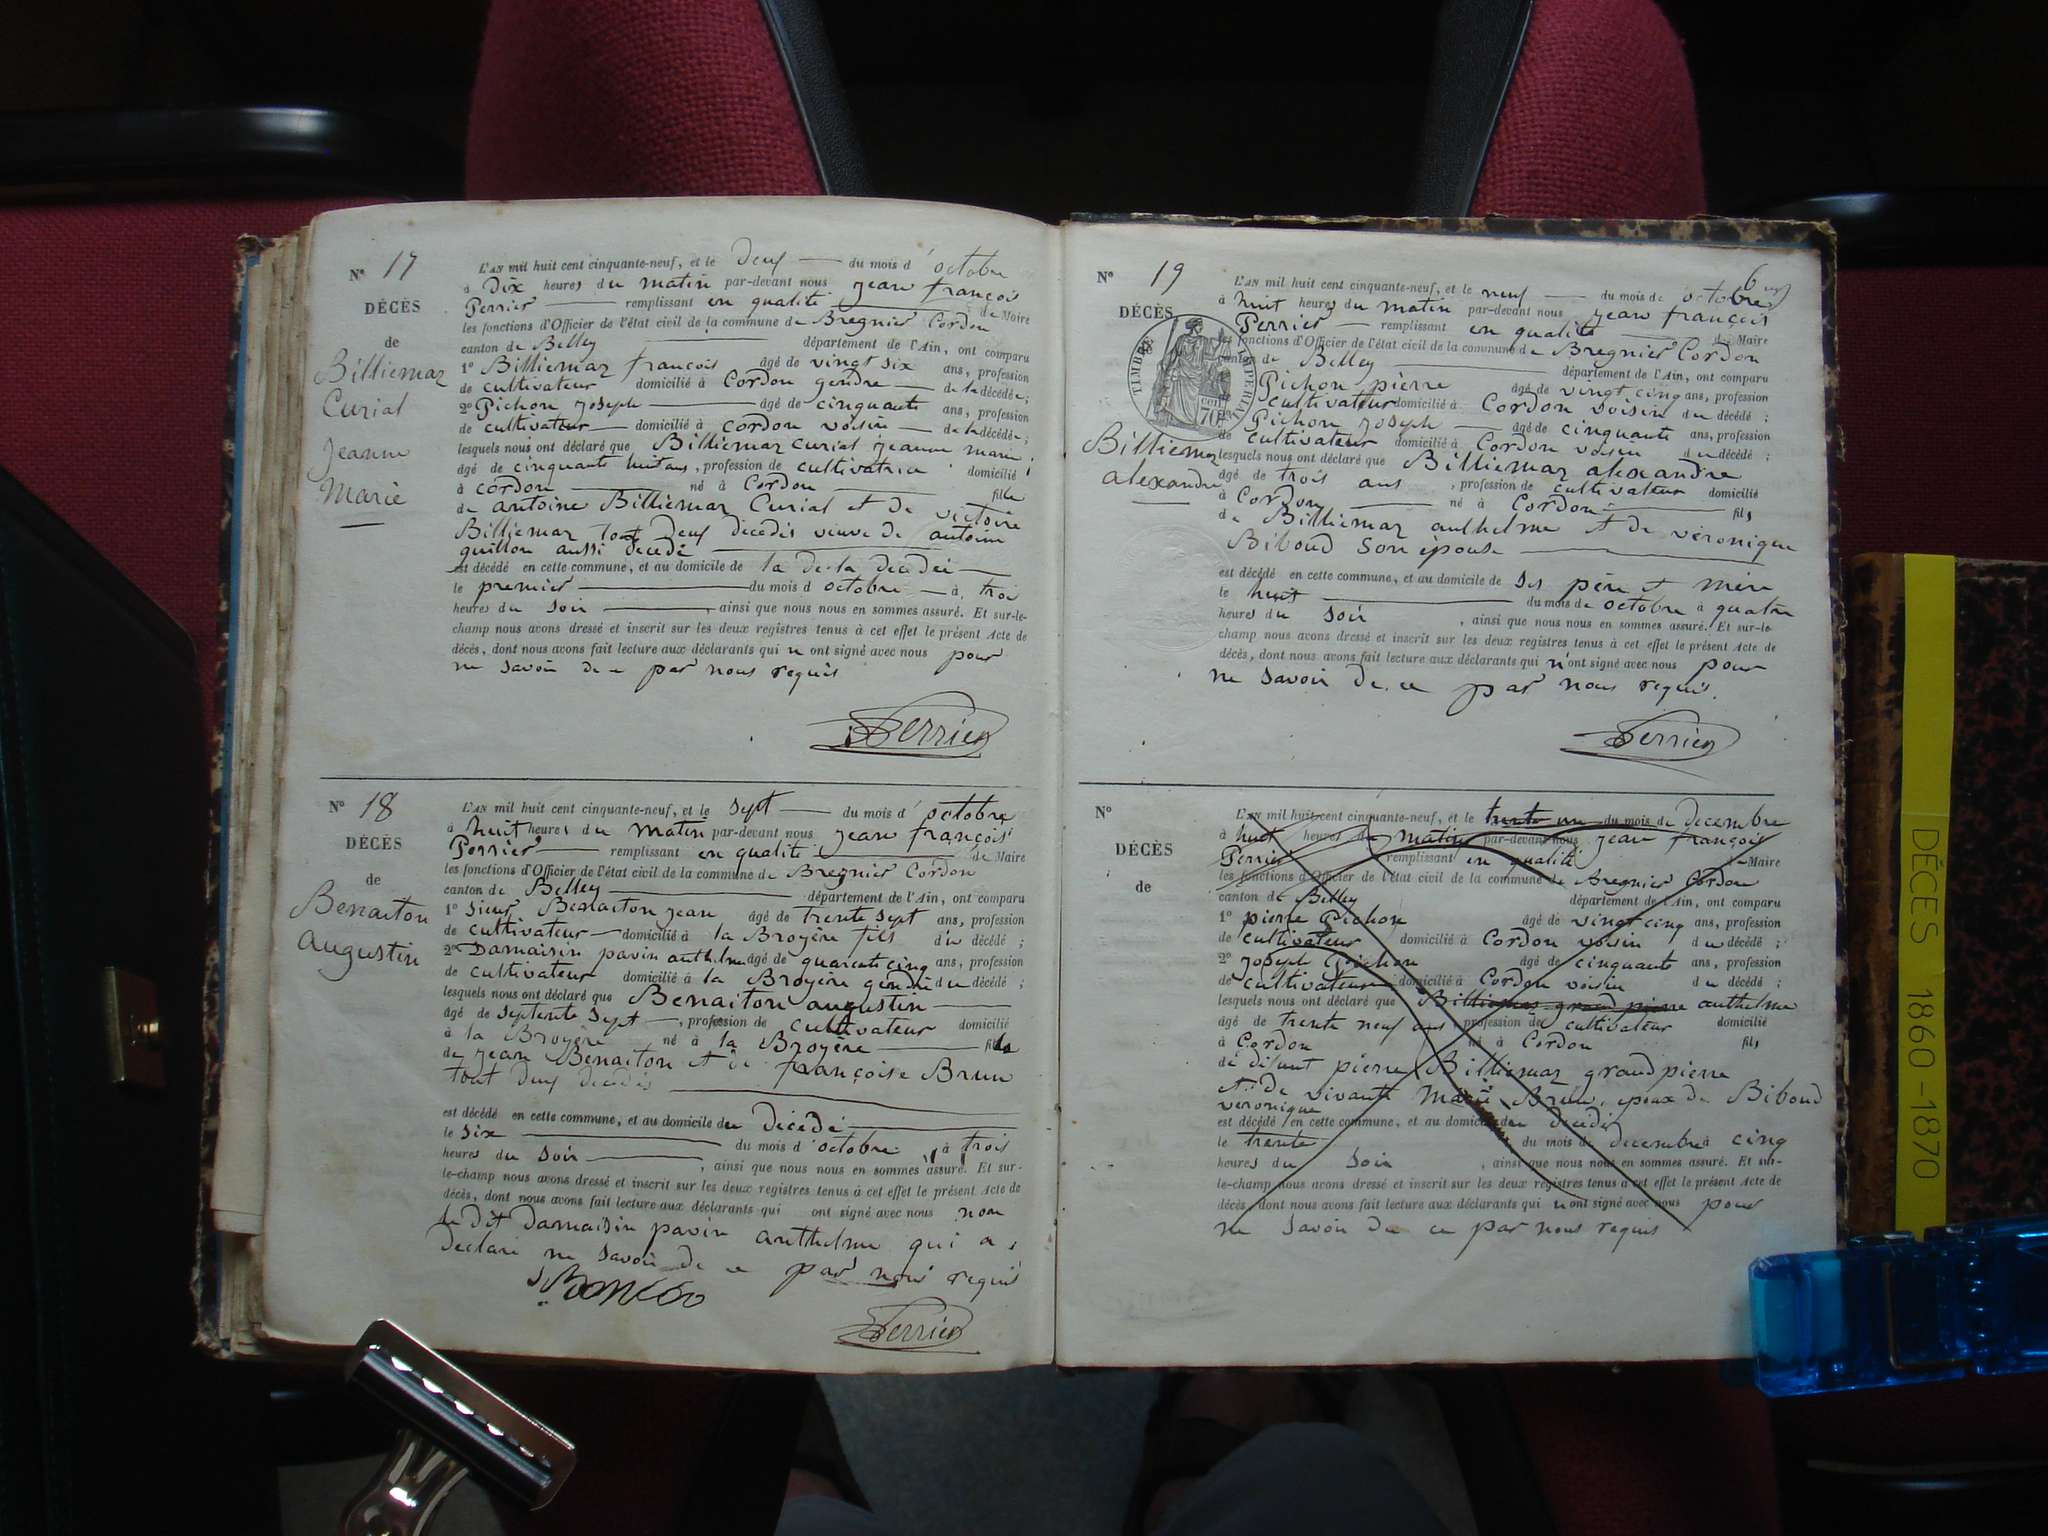 N° 17
DÉCÈS
de
Billiemaz
Curial
Jeanne
Marie
L'AN mil huit cent cinquante-neuf, et le Deux du mois d'octobre
à Dix heures du matin par-devant nous jean françois
Perrier remplissant en qualité de Maire
les fonctions d'Officier de l'état civil de la commune de Bregnier Cordon
canton de Belley département de l'Ain, ont comparu
1° Billiemaz françois âgé de vingt six ans, profession
de cultivateur domicilié à Cordon gendre de la décédée;
2° Pichon joseph âgé de cinquante ans, profession
de cultivateur domicilié à cordon voisin de la décédée;
lesquels nous ont déclaré que Billiemaz curial jeanne marie
âgé de cinquante huit ans, profession de cultivatrice domicilié
à cordon né à Cordon fille
de antoine Billiemaz Curial et de victoire
Billiemaz tout deux décédés veuve de antoine
guillon aussi décédé
est décédé en cette commune, et au domicile de la de la décédée
le premier du mois d octobre à trois
heures du soir, ainsi que nous nous en sommes assuré. Et sur-le-
champ nous avons dressé et inscrit sur les deux registres tenus à cet effet le présent Acte de
décès, dont nous avons fait lecture aux déclarants qui n ont signé avec nous pour
ne savoir de ce par nous requis
Perrier
N° 18
DÉCÈS
de
Benaiton
Augustin
L'AN mil huit cent cinquante-neuf, et le sept du mois d'octobre
à huit heures du matin par-devant nous jean françois
Perrier remplissant en qualité de Maire
les fonctions d'Officier de l'état civil de la commune de Bregnier Cordon
canton de Belley département de l'Ain, ont comparu
1° sieur Benaiton jean âgé de trente sept ans, profession
de cultivateur domicilié à la Broyère fils du décédé;
2° Damaisin pavin anthelme âgé de quarente cinq ans, profession
de cultivateur domicilié à la Broyère gendre du décédé;
lesquels nous ont déclaré que Benaiton augustin
âgé de septente sept, profession de cultivateur domicilié
à la Broyère né à la Broyère fils
de jean Benaiton et de françoise Brun
tout deux décédés
est décédé en cette commune, et au domicile du décédé
le six du mois d'octobre, à trois
heures du soir, ainsi que nous nous en sommes assuré. Et sur-
le-champ nous avons dressé et inscrit sur les deux registres tenus à cet effet le présent Acte de
décès, dont nous avons fait lecture aux déclarants qui ont signé avec nous non
le dit Damaisin pavin anthelme qui a
declaré ne savoir de ce par nous requis
Perrier
N° 19
DÉCÈS
TIMBRE IMPERIAL
70
Billiemaz
alexandre
L'AN mil huit cent cinquante-neuf, et le neuf du mois de octobre
à huit heures du matin par-devant nous jean françois
Perrier remplissant en qualité de Maire
les fonctions d'Officier de l'état civil de la commune de Bregnier Cordon
canton de Belley département de l'Ain, ont comparu
Pichon pierre âgé de vingt cinq ans, profession
cultivateur domicilié à Cordon voisin du décédé;
Pichon joseph âgé de cinquante ans, profession
de cultivateur domicilié à Cordon voisin du décédé;
lesquels nous ont déclaré que Billiemaz alexandre
âgé de trois ans, profession de cultivateur domicilié
à Cordon né à Cordon fils
de Billiemaz anthelme et de véronique
Biboud son épouse
est décédé en cette commune, et au domicile de ses père et mère
le huit du mois de octobre à quatre
heures du soir, ainsi que nous nous en sommes assuré. Et sur-le-
champ nous avons dressé et inscrit sur les deux registres tenus à cet effet le présent Acte de
décès, dont nous avons fait lecture aux déclarants qui n'ont signé avec nous pour
ne savoir de ce par nous requis.
Perrier
N°
DÉCÈS
de
L'AN mil huit cent cinquante-neuf, et le trente un du mois de decembre
à huit heures du matin par-devant nous jean françois
Perrier remplissant en qualité de Maire
les fonctions d'Officier de l'état civil de la commune de Bregnier Cordon
canton de Belley département de l'Ain, ont comparu
1° pierre Pichon âgé de vingt cinq ans, profession
de cultivateur domicilié à Cordon voisin du décédé;
2° joseph Pichon âgé de cinquante ans, profession
de cultivateur domicilié à Cordon voisin du décédé;
lesquels nous ont déclaré que Billiemaz grand pierre anthelme
âgé de trente neuf ans, profession de cultivateur domicilié
à Cordon né à Cordon fils
de défunt pierre Billiemaz grand pierre
et de vivante Marie Brun, époux de Biboud
véronique
est décédé en cette commune, et au domicile du décédé
le trente du mois de decembre à cinq
heures du soir, ainsi que nous nous en sommes assuré. Et sur-
le-champ nous avons dressé et inscrit sur les deux registres tenus à cet effet le présent Acte de
décès, dont nous avons fait lecture aux déclarants qui n ont signé avec nous pour
ne savoir de ce par nous requis
DÉCES 1860-1870